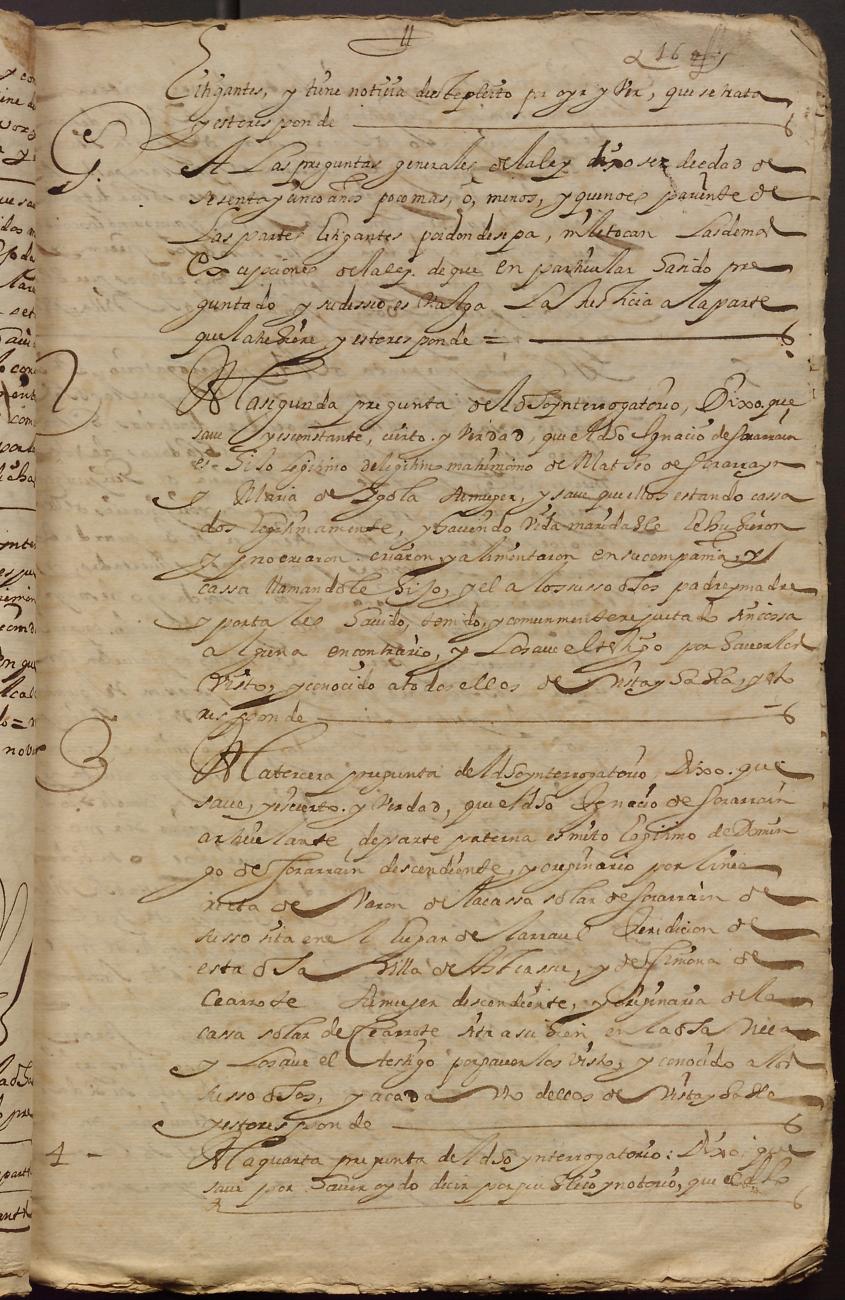 litigantes, y tiene noticia deste pleito por oyr y Ver, que se trata
y esto responde
G.
A Las preguntas generales de la ley dixo ser de edad de
sesenta y cinco años poco mas, o, menos, y que no es pariente de
Las partes litigantes por donde sepa, ni le tocan Las demas
Excepciones de la ley. de que en particular a sido pre
guntado y su desseo es Valga La Justicia a la parte
que la hubiere y esto responde =
2
A la segunda pregunta del dho ynterrogatorio, Dixo, que
save y es constante, cierto. y Verdad, que el dho Ignacio de Sorarrain
es hijo legitimo de legitimo matrimonio de Matheo de Sorarrayn
y Maria de Ygola su muger, y save que ellos estando cassa
dos legitimamente, y haciendo Vida maridable le hubieron
y procriaron. criaron, y alimentaron en su compañia, y
cassa llamandole hijo, y el a los susso dhos padre y madre
y por tales havido, tenido, y comunmente rejutado sin cossa
alguna en contrario, y Lo save el testigo por haverlos
Visto, y conocido a todos ellos de Vista y habla, y esto
responde
3
A la tercera pregunta del dho ynterrogatorio, Dixo. que
save, y es cierto. y Verdad, que el dho Ignacio de Sorarrain
articulante, de parte paterna es nieto legitimo de Domin
go de Sorarrain descendiente, y originario por linea
recta de Varon de la cassa solar de Sorarrain de
susso sita en el lugar de larraul Juridicion de
esta dha Villa de Asteassu, y de Simona de
Cearrote su muger descendiente, y originaria de la
cassa solar de Cearrote sita assi bien en la dha Villa
y Lo save el testigo por haverlos Visto, y conocido a los
susso dhos, y a cada Vno dellos de Vista y habla
y esto responde
4 -
A la quarta pregunta del dho ynterrogatorio: Dixo, que
save por haver oydo decir por publico y notorio, que el dho